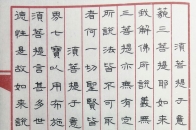 須菩提于意
藐三菩提耶如來
我解佛所說義無
三菩提亦無有定
所說法皆不可取
者何一切聖賢皆
須菩提于意
界七寶以用布施
須菩提言甚多世
德性是故如來說